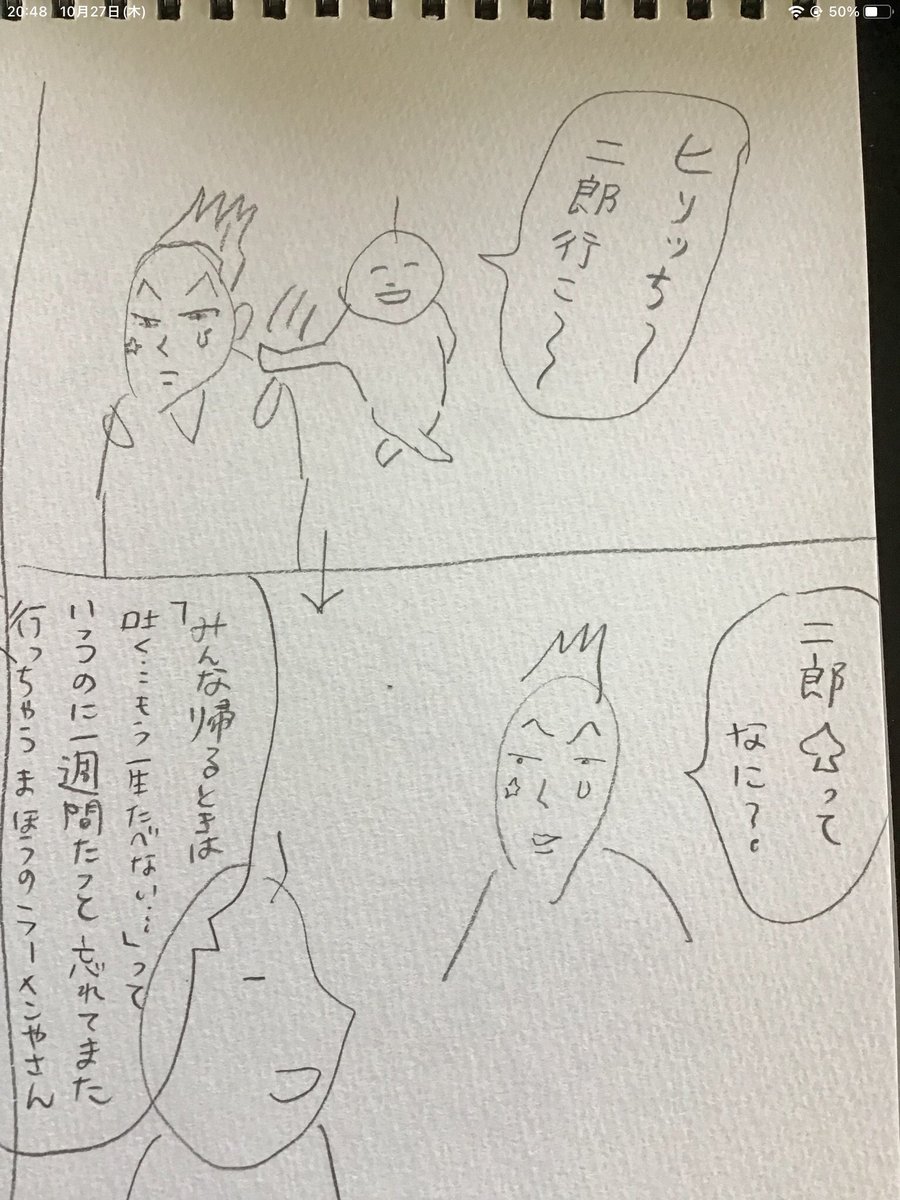 20:48 10月27日(木)
50%
ヒソッち〜
二郎行こ〜〜
二郎♤って
なに?
「みんな帰るときは
吐く…もう一生たべない…」って
いうのに一週間たつと忘れてまた
行っちゃうまほうのラーメンやさん